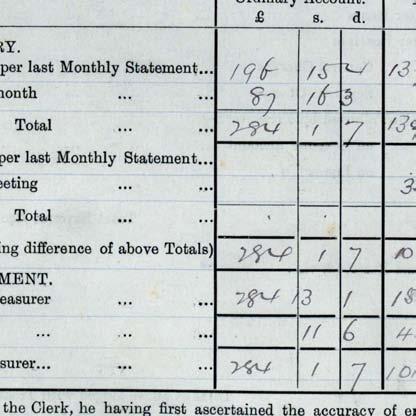 Ordinary Account.
£ s. d.
RY.
per last Monthly Statement... 196 15 4 13
month ... ... 87 3
Total ... ... 284 1 7 139
per last Monthly Statement...
eeting ... ... 3
Total ... ...
ing difference of above Totals) 284 1 7 10
MENT.
easurer ... ... 284 13 1 18
... ... ... 11 6 4
surer... ... ... 284 1 7 101
the Clerk, he having first ascertained the accuracy of en